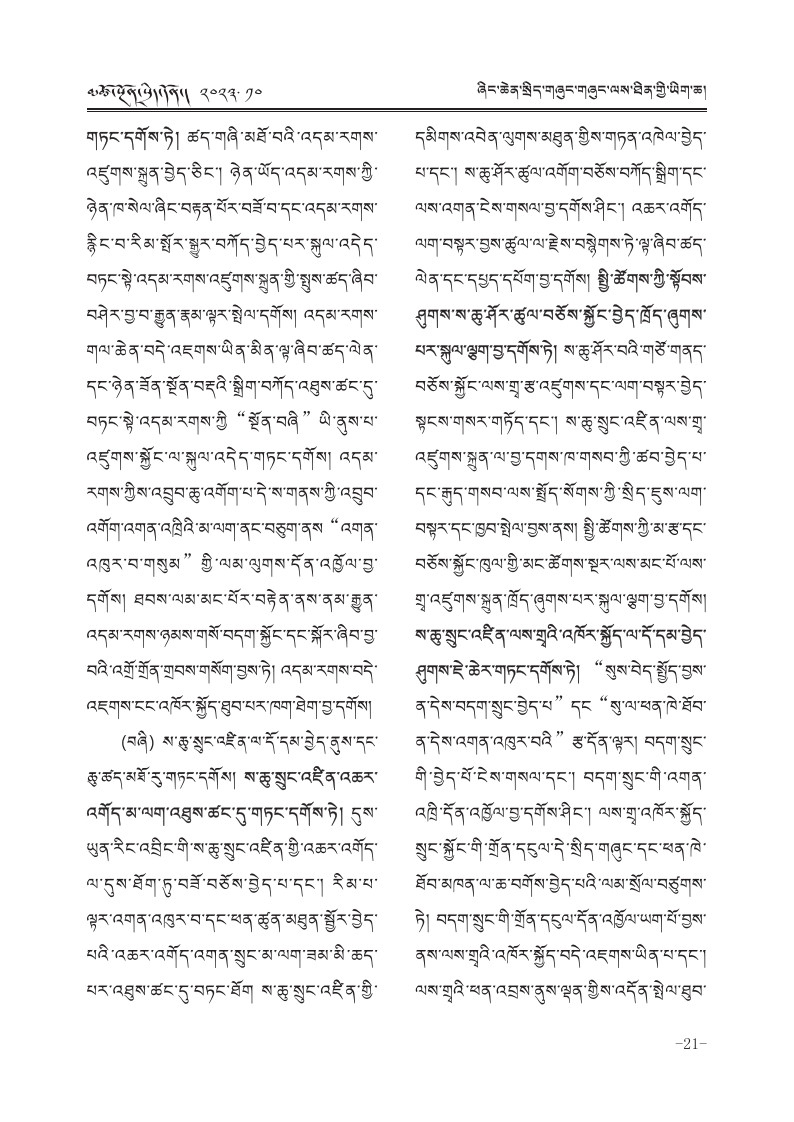 མཚོ་སྔོན་སྤྱི་དཔེ། ༢༠༢༣·༡༠
ཞིང་ཆེན་སྲིད་གཞུང་གཞུང་ལས་ཐིན་གྱི་ཡིག་ཆ།
གཏང་དགོས་ཏེ། ཚད་གཞི་མཐོ་བའི་འདམ་རགས་
འཛུགས་སྐྲུན་བྱེད་ཅིང་། ཉེན་ཡོད་འདམ་རགས་ཀྱི་
ཉེན་ཁ་སེལ་ཞིང་བརྟན་པོར་བཟོ་བ་དང་འདམ་རགས་
རྙིང་བ་རིམ་སྤོར་སྒྱུར་བཀོད་བྱེད་པར་སྐུལ་འདེད་
བཏང་སྟེ་འདམ་རགས་འཛུགས་སྐྲུན་གྱི་སྤུས་ཚད་ཞིབ་
བཤེར་བྱ་བ་རྒྱུན་རྣམ་ལྟར་སྤེལ་དགོས། འདམ་རགས་
གལ་ཆེན་བདེ་འཇགས་ཡིན་མིན་ལྟ་ཞིབ་ཚད་ལེན་
དང་ཉེན་ཟོན་སྔོན་བརྡའི་སྒྲིག་བཀོད་འཐུས་ཚང་དུ་
བཏང་སྟེ་འདམ་རགས་ཀྱི “སྔོན་བཞི” ཡི་ནུས་པ་
འཛུགས་སྐྱོང་ལ་སྐུལ་འདེད་གཏང་དགོས། འདམ་
རགས་ཀྱིས་འབྲུབ་ཆུ་འགོག་པ་དེ་ས་གནས་ཀྱི་འབྲུབ་
འགོག་འགན་འཁྲིའི་མ་ལག་ནང་བཅུག་ནས “འགན་
འཁུར་བ་གསུམ” གྱི་ལམ་ལུགས་དོན་འཁྱོལ་བྱ་
དགོས། ཐབས་ལམ་མང་པོར་བརྟེན་ནས་ནམ་རྒྱུན་
འདམ་རགས་ཉམས་གསོ་བདག་སྐྱོང་དང་སྐོར་ཞིབ་བྱ་
བའི་འགྲོ་གྲོན་གྲབས་གསོག་བྱས་ཏེ། འདམ་རགས་བདེ་
འཇགས་ངང་འཁོར་སྐྱོད་ཐུབ་པར་ཁག་ཐེག་བྱ་དགོས།
(བཞི) ས་ཆུ་སྲུང་འཛིན་ལ་དོ་དམ་བྱེད་ནུས་དང་
ཆུ་ཚད་མཐོ་རུ་གཏང་དགོས། ས་ཆུ་སྲུང་འཛིན་འཆར་
འགོད་མ་ལག་འཐུས་ཚང་དུ་གཏང་དགོས་ཏེ། དུས་
ཡུན་རིང་འབྲིང་གི་ས་ཆུ་སྲུང་འཛིན་གྱི་འཆར་འགོད་
ལ་དུས་ཐོག་ཏུ་བཟོ་བཅོས་བྱེད་པ་དང་། རིམ་པ་
ལྟར་འགན་འཁུར་བ་དང་ཕན་ཚུན་མཐུན་སྦྱོར་བྱེད་
པའི་འཆར་འགོད་འགན་སྲུང་མ་ལག་ཟམ་མི་ཆད་
པར་འཐུས་ཚང་དུ་བཏང་ཐོག ས་ཆུ་སྲུང་འཛིན་གྱི་
དམིགས་འབེན་ལུགས་མཐུན་གྱིས་གཏན་འཁེལ་བྱེད་
པ་དང་། ས་ཆུ་ཤོར་ཚུལ་འགོག་བཅོས་བཀོད་སྒྲིག་དང་
ལས་འགན་ངེས་གསལ་བྱ་དགོས་ཤིང་། འཆར་འགོད་
ལག་བསྟར་བྱས་ཚུལ་ལ་རྗེས་བསྙེགས་ཏེ་ལྟ་ཞིབ་ཚད་
ལེན་དང་དཔྱད་དཔོག་བྱ་དགོས། སྤྱི་ཚོགས་ཀྱི་སྟོབས་
ཤུགས་ས་ཆུ་ཤོར་ཚུལ་བཅོས་སྐྱོང་བྱེད་ཁྲོད་ཞུགས་
པར་སྐུལ་ལྕག་བྱ་དགོས་ཏེ། ས་ཆུ་ཤོར་བའི་གཙོ་གནད་
བཅོས་སྐྱོང་ལས་གྲྭ་རྩ་འཛུགས་དང་ལག་བསྟར་བྱེད་
སྟངས་གསར་གཏོད་དང་། ས་ཆུ་སྲུང་འཛིན་ལས་གྲྭ་
འཛུགས་སྐྲུན་ལ་བྱ་དགས་ཁ་གསབ་ཀྱི་ཚབ་བྱེད་པ་
དང་རྒུད་གསབ་ལས་སྤྲོད་སོགས་ཀྱི་སྲིད་ཇུས་ལག་
བསྟར་དང་ཁྱབ་སྤེལ་བྱས་ནས། སྤྱི་ཚོགས་ཀྱི་མ་རྩ་དང་
བཅོས་སྐྱོང་ཁུལ་གྱི་མང་ཚོགས་སྔར་ལས་མང་པོ་ལས་
གྲྭ་འཛུགས་སྐྲུན་ཁྲོད་ཞུགས་པར་སྐུལ་ལྕག་བྱ་དགོས།
ས་ཆུ་སྲུང་འཛིན་ལས་གྲྭའི་འཁོར་སྐྱོད་ལ་དོ་དམ་བྱེད་
ཤུགས་ཇེ་ཆེར་གཏང་དགོས་ཏེ། “སུས་བེད་སྤྱོད་བྱས་
ན་དེས་བདག་སྲུང་བྱེད་པ” དང “སུ་ལ་ཕན་ཁེ་ཐོབ་
ན་དེས་འགན་འཁུར་བའི” རྩ་དོན་ལྟར། བདག་སྲུང་
གི་བྱེད་པོ་ངེས་གསལ་དང་། བདག་སྲུང་གི་འགན་
འཁྲི་དོན་འཁྱོལ་བྱ་དགོས་ཤིང་། ལས་གྲྭ་འཁོར་སྐྱོད་
སྲུང་སྐྱོང་གི་གྲོན་དངུལ་དེ་སྲིད་གཞུང་དང་ཕན་ཁེ་
ཐོབ་མཁན་ལ་ཆ་བགོས་བྱེད་པའི་ལམ་སྲོལ་བཙུགས་
ཏེ། བདག་སྲུང་གི་གྲོན་དངུལ་དོན་འཁྱོལ་ཡག་པོ་བྱས་
ནས་ལས་གྲྭའི་འཁོར་སྐྱོད་བདེ་འཇགས་ཡིན་པ་དང་།
ལས་གྲྭའི་ཕན་འབྲས་ནུས་ལྡན་གྱིས་འདོན་སྤེལ་ཐུབ་
-21-